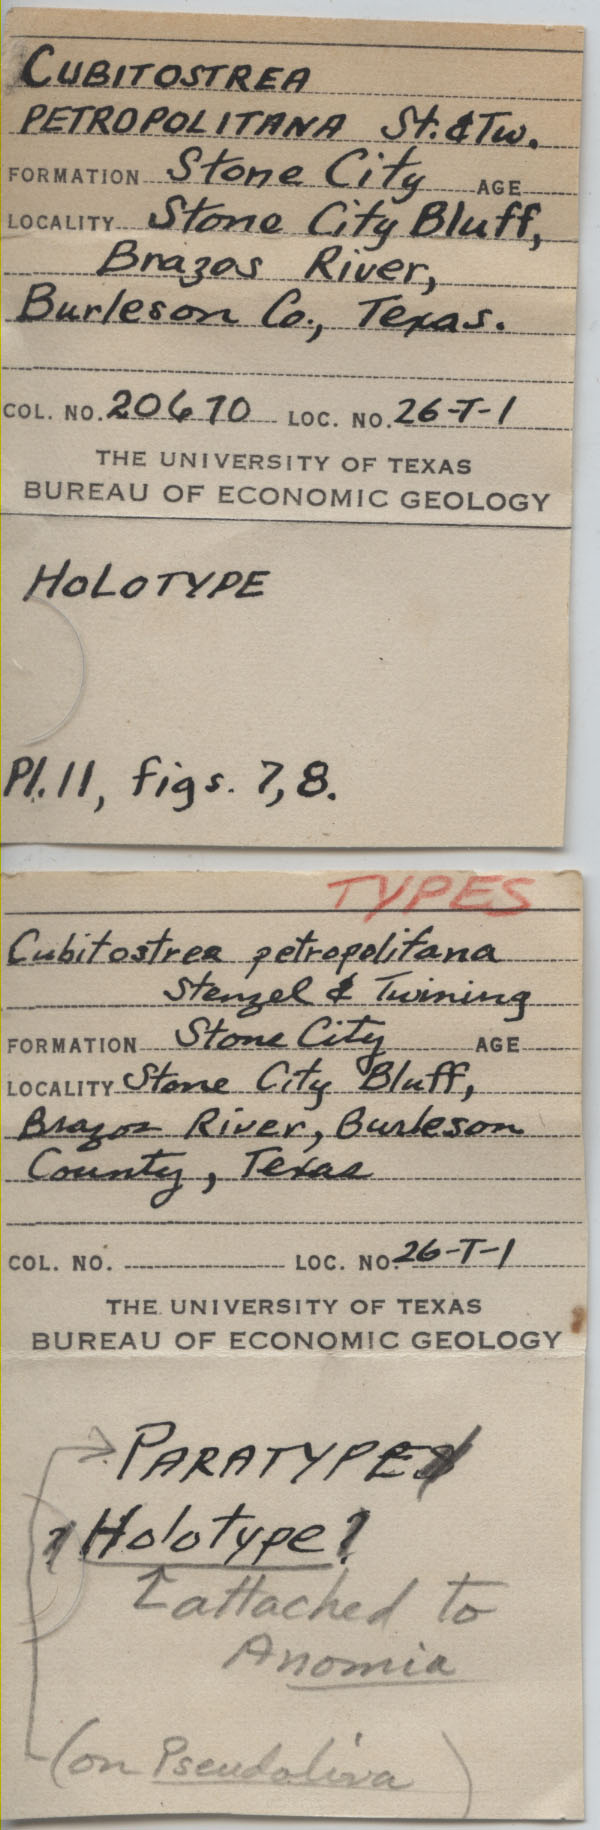 CUBITOSTREA
PETROPOLITANA St. & Tw.
FORMATION Stone City AGE
LOCALITY Stone City Bluff,
Brazos River,
Burleson Co., Texas.
COL. NO. 20670 LOC. NO. 26-T-1
THE UNIVERSITY OF TEXAS
BUREAU OF ECONOMIC GEOLOGY
HOLOTYPE
Pl. 11, figs. 7, 8.
TYPES
Cubitostrea petropolitana
Stenzel & Twining
FORMATION Stone City AGE
LOCALITY Stone City Bluff,
Brazos River, Burleson
County, Texas
COL. NO. LOC. NO. 26-T-1
THE UNIVERSITY OF TEXAS
BUREAU OF ECONOMIC GEOLOGY
PARATYPE
? Holotype ?
attached to
Anomia
(on Pseudoliva )